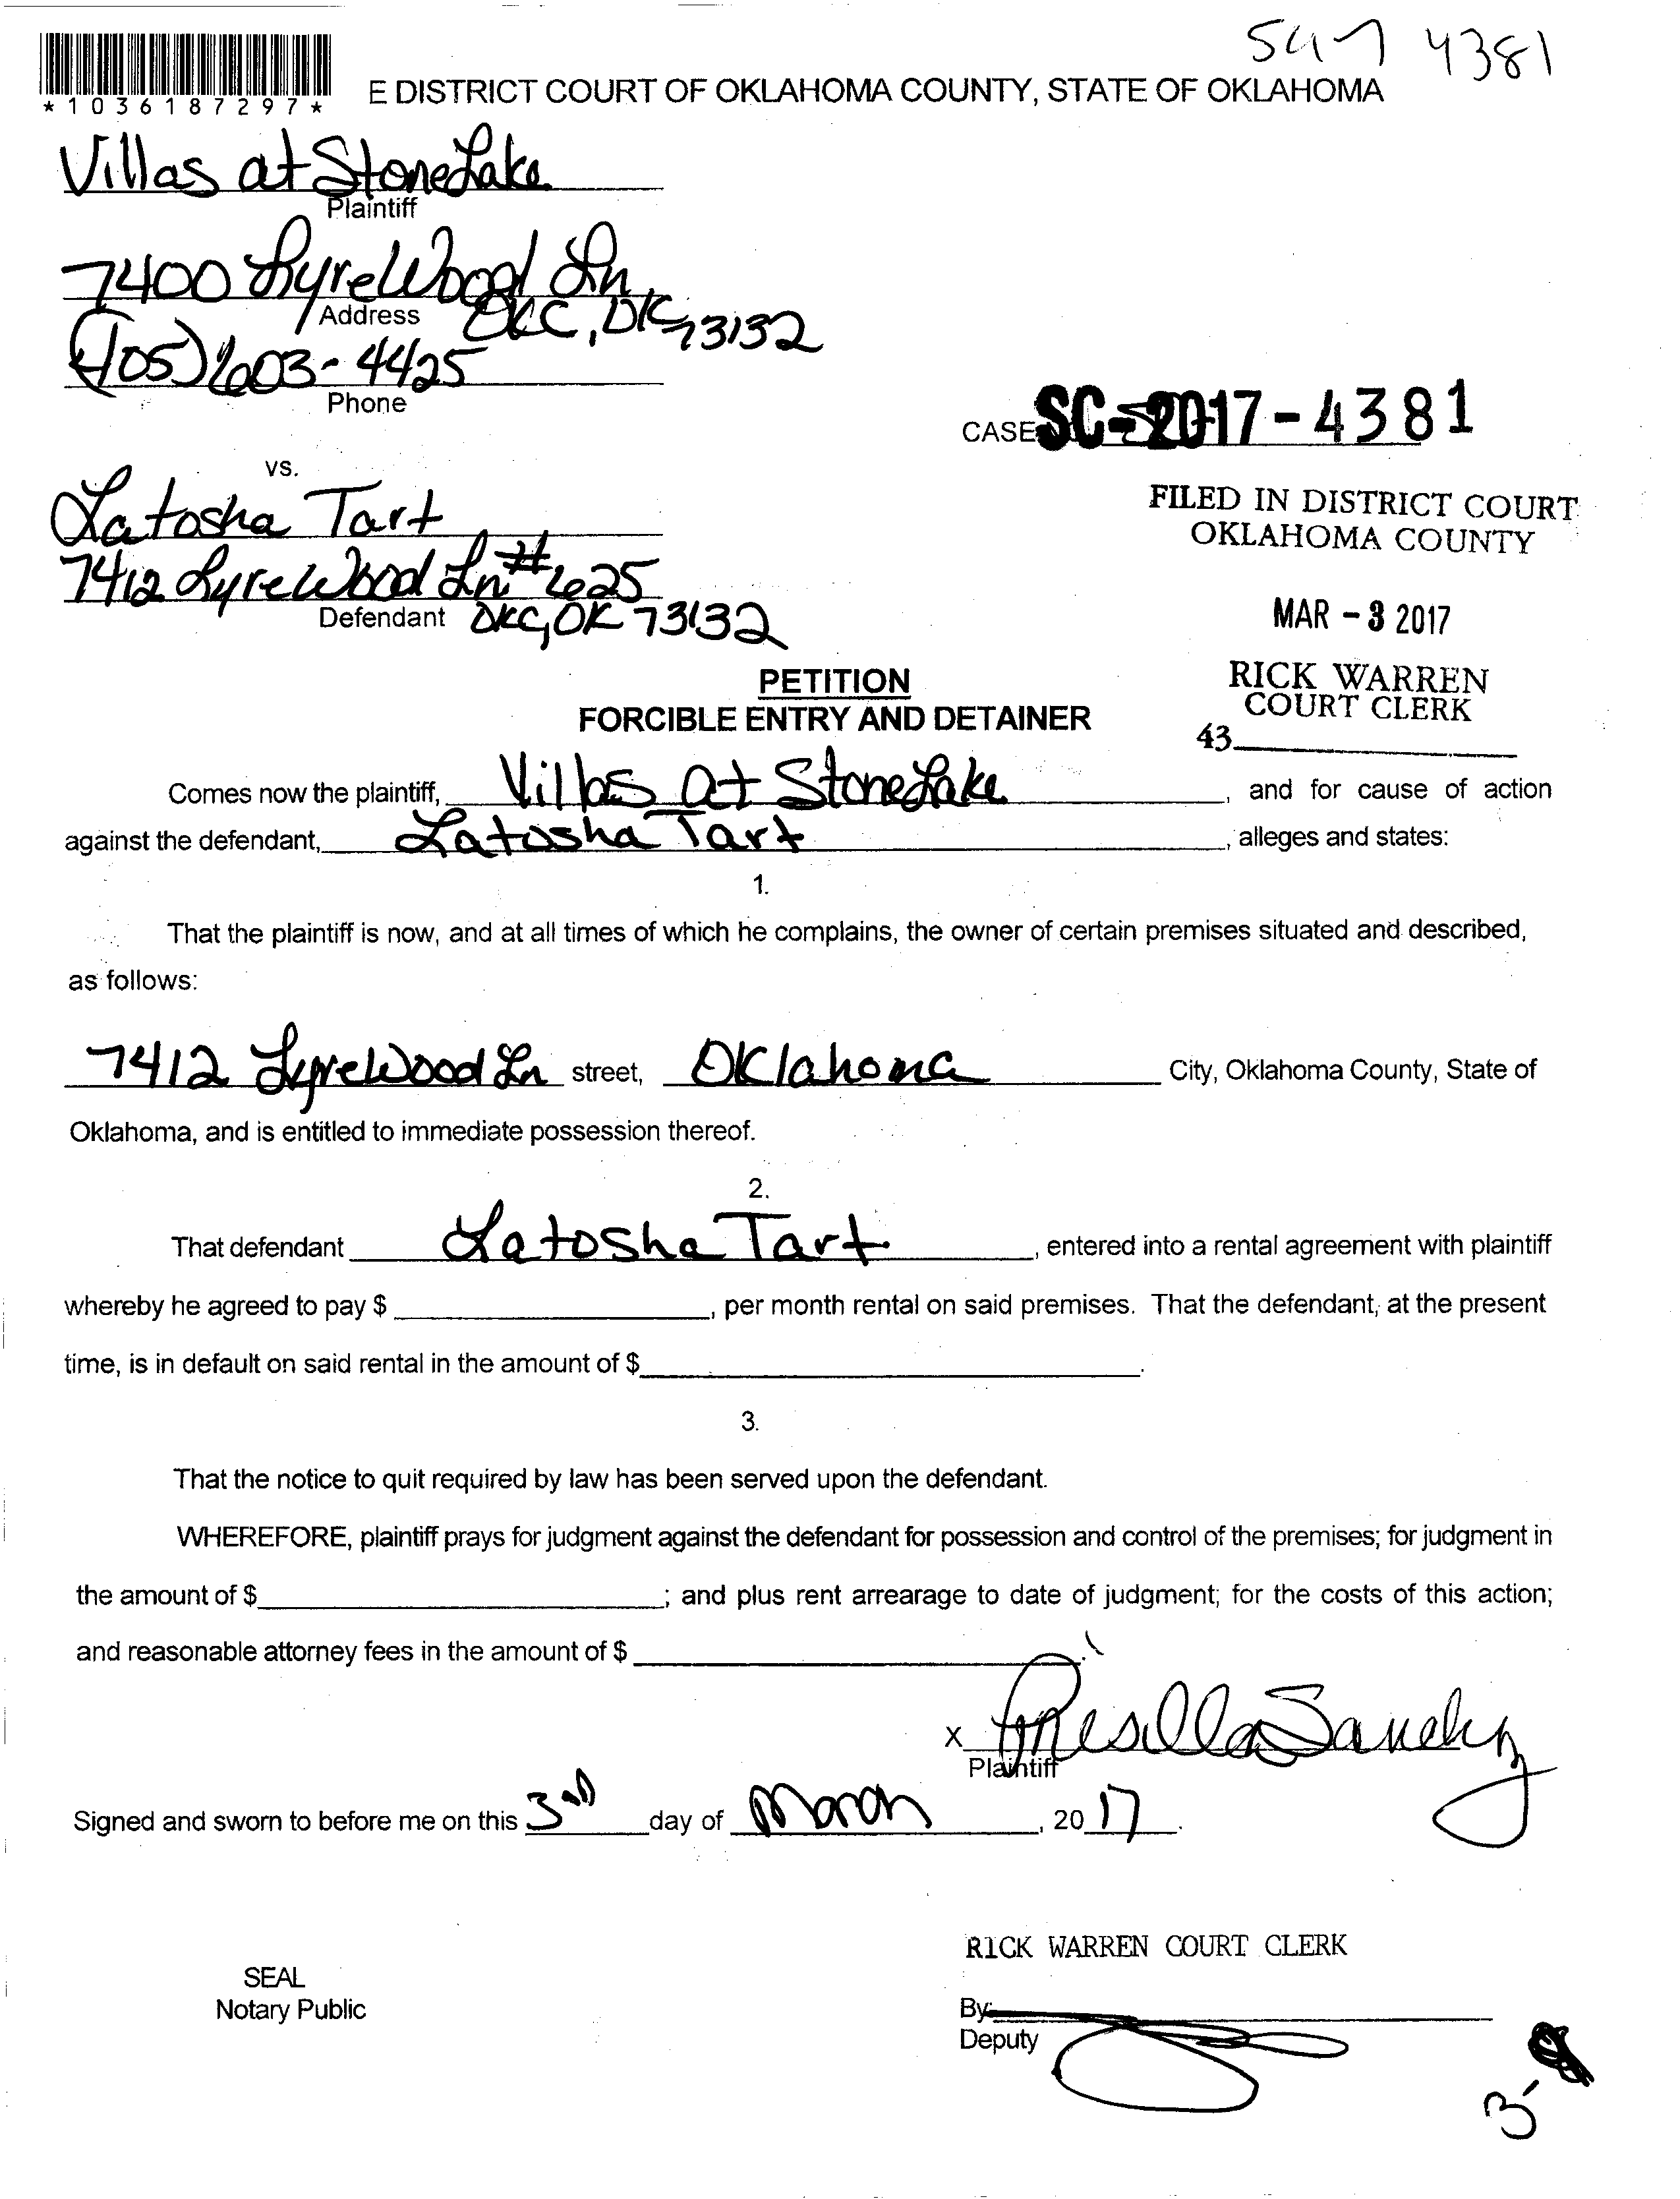 4381
*1036187297*
E DISTRICT COURT OF OKLAHOMA COUNTY, STATE OF OKLAHOMA
Villas at StoneLake
Plaintiff
7400 LyreWood Ln
Address OKC, OK 73132
(405) 603-4425
Phone
CASE SC-2017-4381
vs.
Latosha Tart
FILED IN DISTRICT COURT
OKLAHOMA COUNTY
7412 LyreWood Ln #625
Defendant OKC, OK 73132
MAR - 3 2017
PETITION
RICK WARREN
COURT CLERK
FORCIBLE ENTRY AND DETAINER
43
Comes now the plaintiff, Villas at StoneLake, and for cause of action
against the defendant, Latosha Tart, alleges and states:
1.
That the plaintiff is now, and at all times of which he complains, the owner of certain premises situated and described,
as follows:
7412 LyreWood Ln street, Oklahoma City, Oklahoma County, State of
Oklahoma, and is entitled to immediate possession thereof.
2.
That defendant Latosha Tart, entered into a rental agreement with plaintiff
whereby he agreed to pay $ , per month rental on said premises. That the defendant, at the present
time, is in default on said rental in the amount of $ .
3.
That the notice to quit required by law has been served upon the defendant.
WHEREFORE, plaintiff prays for judgment against the defendant for possession and control of the premises; for judgment in
the amount of $ ; and plus rent arrearage to date of judgment; for the costs of this action;
and reasonable attorney fees in the amount of $ .
X Prisilla Sanchez
Plaintiff
Signed and sworn to before me on this 3rd day of March, 2017.
RICK WARREN COURT CLERK
SEAL
Notary Public
By:
Deputy
3-